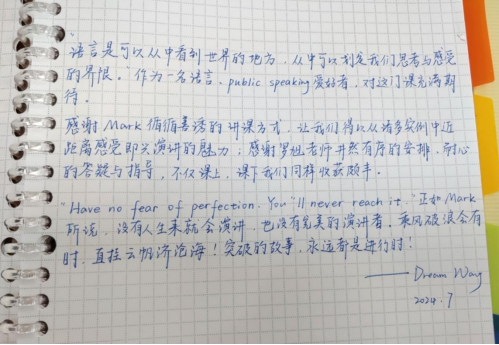 "语言是可以从中看到世界的地方，从中可以划定我们思考与感受
的界限。"作为一名语言、public speaking爱好者，对这门课充满期
待。
感谢Mark循循善诱的讲课方式，让我们得以从诸多实例中近
距离感受即兴演讲的魅力；感谢老师井然有序的安排、耐心
的答疑与指导，不仅课上，课下我们同样收获颇丰。
"Have no fear of perfection. You''ll never reach it."正如Mark
所说，没有人生来就会演讲，也没有完美的演讲者。乘风破浪会有
时，直挂云帆济沧海！突破的故事，永远都是进行时！
——Dream Wang
2024.7